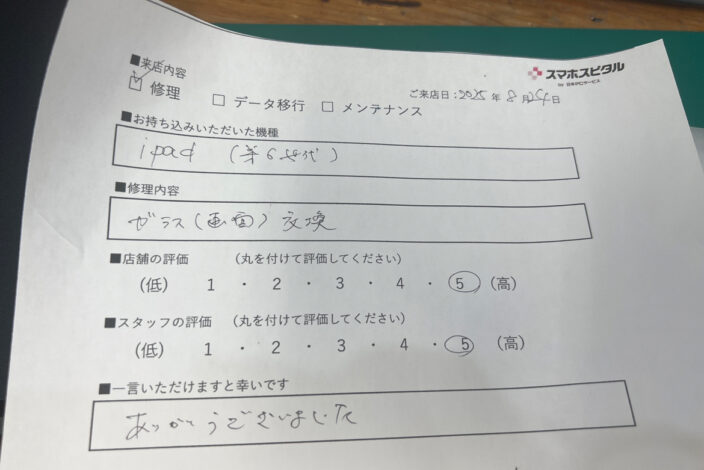 スマホスピタル
■来店内容
ご来店日：2025年 8月24日
☑ 修理 □ データ移行 □ メンテナンス
■お持ち込みいただいた機種
ipad （第6世代）
■修理内容
ガラス（画面）交換
■店舗の評価 （丸を付けて評価してください）
（低） 1 ・ 2 ・ 3 ・ 4 ・ 5 （高）
■スタッフの評価 （丸を付けて評価してください）
（低） 1 ・ 2 ・ 3 ・ 4 ・ 5 （高）
■一言いただけますと幸いです
ありがとうございました